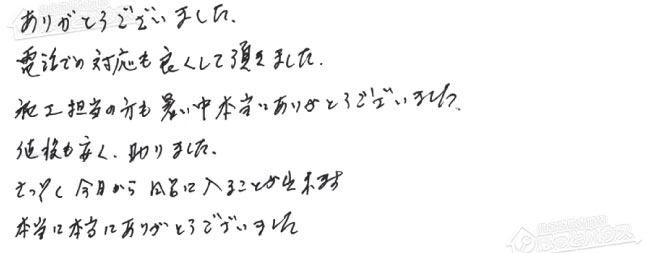 ありがとうございました。
電話での対応も良くして頂きました。
施工担当の方も暑い中本当にありがとうございました。
値段も安く、助りました。
さっそく今日からお風呂に入ることが出来ます
本当に本当にありがとうございました